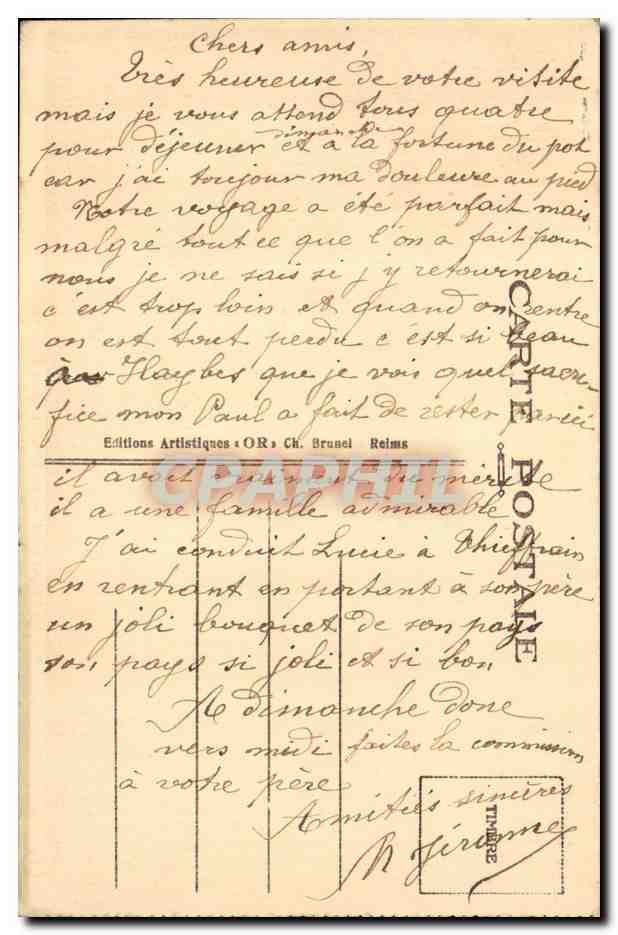 Chers amis,
Très heureuse de votre visite
mais je vous attend tous quatre
dimanche
pour déjeuner et à la fortune du pot
car j'ai toujour ma douleure au pied
Notre voyage a été parfait mais
malgré tout ce que l'on a fait pour
nous je ne sais si j'y retournerai
c'est trop loin et quand on rentre
on est tout perdu c'est si beau
Haybes que je vois quel sacri-
fice mon Paul a fait de rester par ici
Editions Artistiques « OR » Ch. Brunel Reims
il avait vraiment du mérite
il a une famille admirable
J'ai conduit Lucie à Thieffrain
en rentrant en portant à son père
un joli bouquet de son pays
son pays si joli et si bon
A dimanche donc
vers midi faites la commission
à votre père
Amitiés sincères
Jérome
CARTE POSTALE
TIMBRE
CPAPHIL